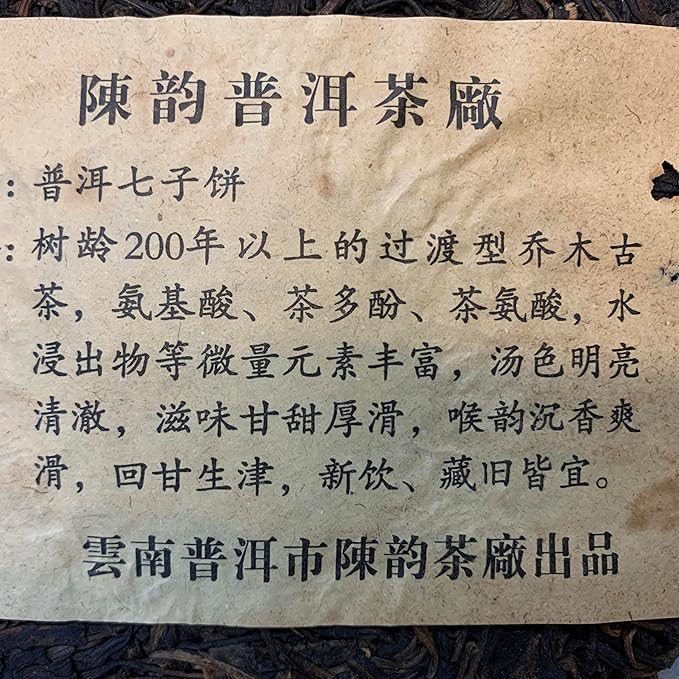 陳韵普洱茶廠
：普洱七子饼
：树龄200年以上的过渡型乔木古
茶，氨基酸、茶多酚、茶氨酸，水
浸出物等微量元素丰富，汤色明亮
清澈，滋味甘甜厚滑，喉韵沉香爽
滑，回甘生津，新饮、藏旧皆宜。
雲南普洱市陳韵茶廠出品